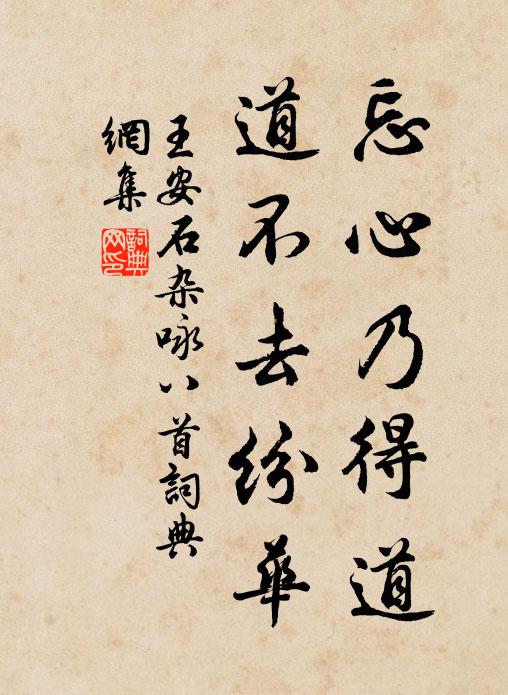 忘心乃得道
道不去紛華
王安石杂咏八首詞典
網集
詞典
网印